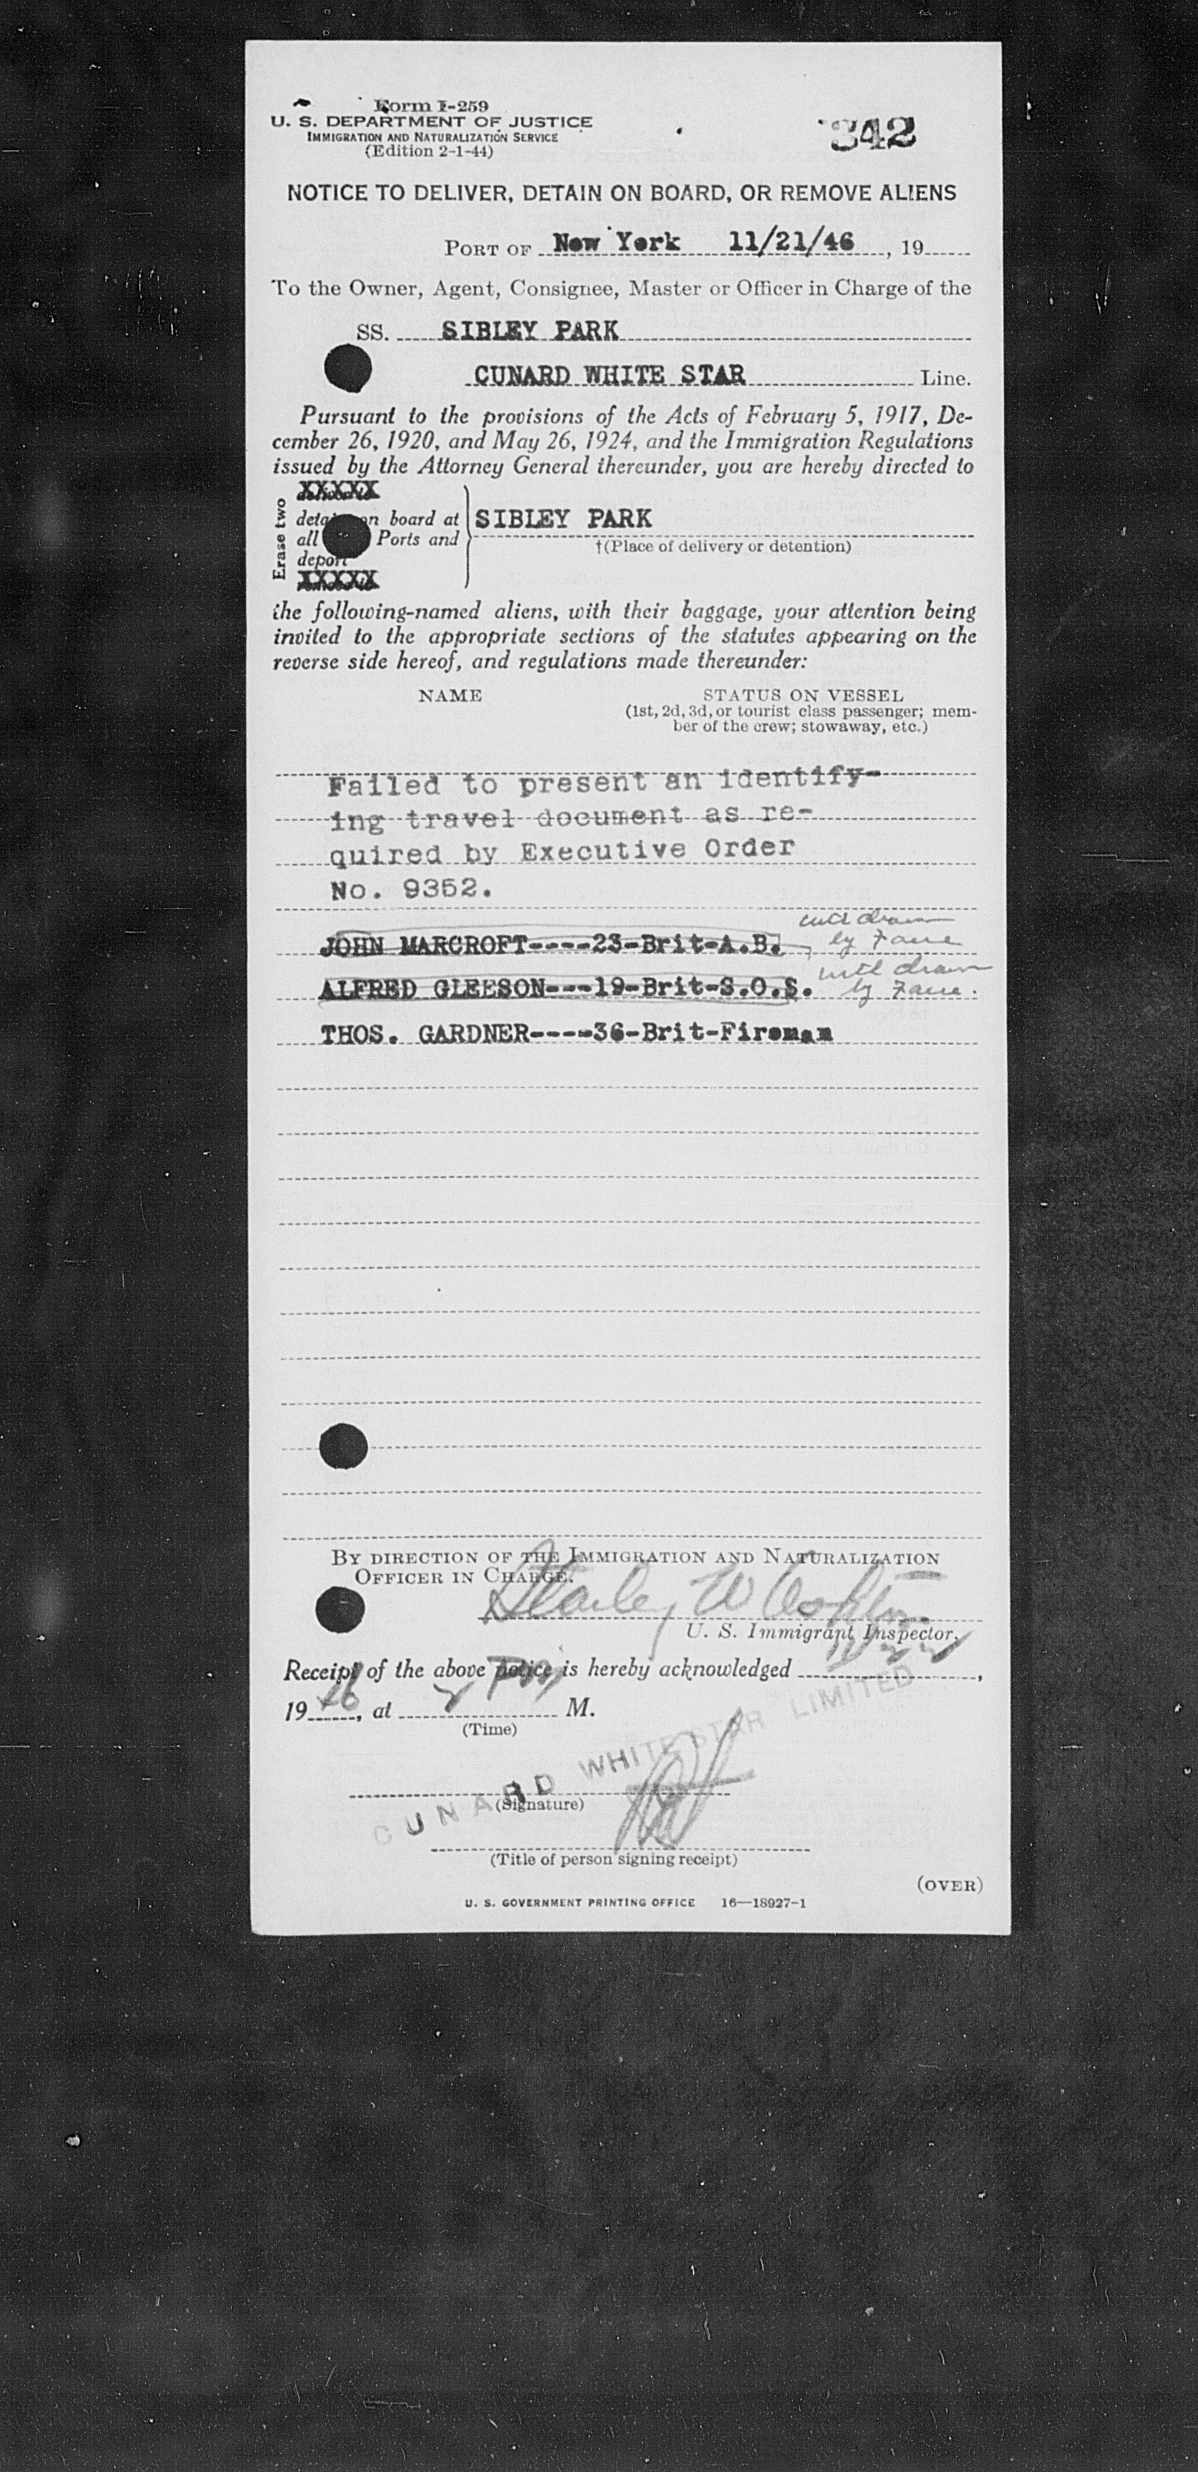 Form I-259
U. S. DEPARTMENT OF JUSTICE
IMMIGRATION AND NATURALIZATION SERVICE
(Edition 2-1-44)
342
NOTICE TO DELIVER, DETAIN ON BOARD, OR REMOVE ALIENS
PORT OF New York 11/21/46, 19
To the Owner, Agent, Consignee, Master or Officer in Charge of the
SS. SIBLEY PARK
CUNARD WHITE STAR Line.
Pursuant to the provisions of the Acts of February 5, 1917, De-
cember 26, 1920, and May 26, 1924, and the Immigration Regulations
issued by the Attorney General thereunder, you are hereby directed to
Erase two
XXXXX
detain on board at
all Ports and
deport
XXXXX
SIBLEY PARK
†(Place of delivery or detention)
the following-named aliens, with their baggage, your attention being
invited to the appropriate sections of the statutes appearing on the
reverse side hereof, and regulations made thereunder:
NAME STATUS ON VESSEL
(1st, 2d, 3d, or tourist class passenger; mem-
ber of the crew; stowaway, etc.)
Failed to present an identify-
ing travel document as re-
quired by Executive Order
No. 9352.
JOHN MARCROFT----23-Brit-A.B. withdrawn
by
ALFRED GLEESON---19-Brit-S.O.S. withdrawn
by
THOS. GARDNER----36-Brit-Fireman
BY DIRECTION OF THE IMMIGRATION AND NATURALIZATION
OFFICER IN CHARGE.
Stanley W
U. S. Immigrant Inspector.
Receipt of the above notice is hereby acknowledged 11/22,
1946, at 2 PM M.
(Time)
CUNARD WHITE STAR LIMITED
(Signature)
(Title of person signing receipt)
(OVER)
U. S. GOVERNMENT PRINTING OFFICE 16—18927-1